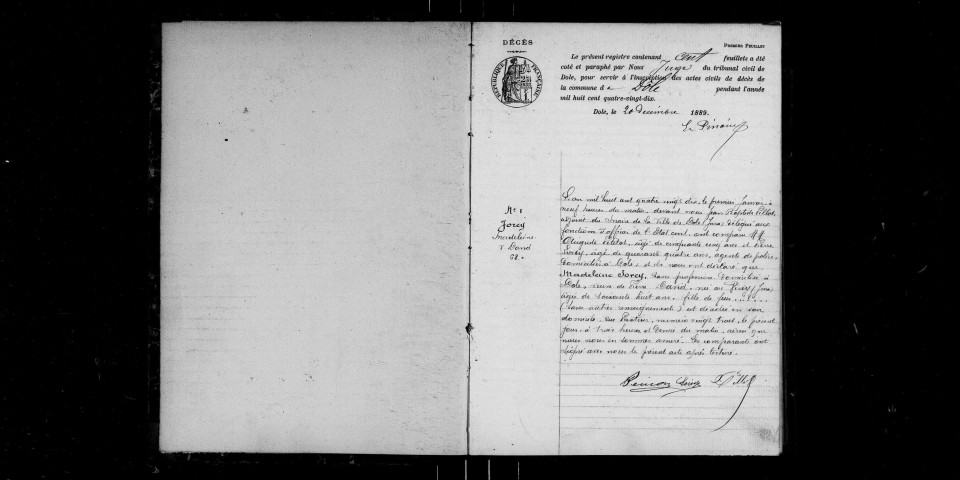 DÉCÈS
PREMIER FEUILLET
RÉPUBLIQUE FRANÇAISE
Le présent registre contenant cent feuillets a été
coté et paraphé par Nous Juge du tribunal civil de
Dole, pour servir à l'inscription des actes civils de décès de
la commune d e Dole pendant l'année
mil huit cent quatre-vingt-dix.
Dole, le 20 décembre 1889.
Le
N° 1
Jorcy
Madeleine
v David
68.
L'an mil huit cent quatre vingt dix, le premier janvier à
neuf heures du matin, devant nous Jean Baptiste Pillot,
adjoint du Maire de la Ville de Dole (Jura) délégué aux
fonctions d'officier de l'Etat civil, ont comparu MM
âgé de cinquante cinq ans et Pierre
âgé de quarante quatre ans, agents de police,
domiciliés à Dole, et ils nous ont déclaré que
Madeleine Jorcy, sans profession domiciliée à
Dole, veuve de Pierre David, née au (Jura)
âgée de soixante huit ans, fille de feu
(sans autres renseignements) est décédée en son
domicile, rue Pasteur, numéro vingt trois, le présent
jour à trois heures et demie du matin, ainsi que
nous nous en sommes assuré. Les comparants ont
signé avec nous le présent acte après lecture.